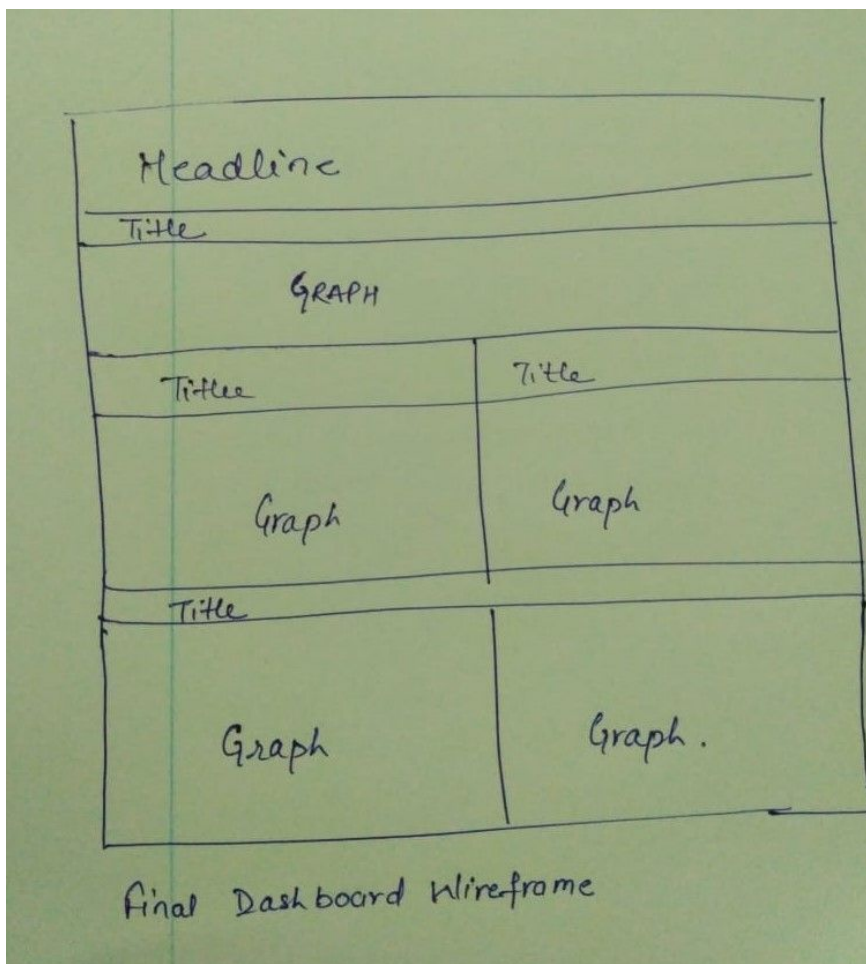 Headline
Title
GRAPH
Titlee Title
Graph Graph
Title
Graph Graph.
Final Dashboard Wireframe